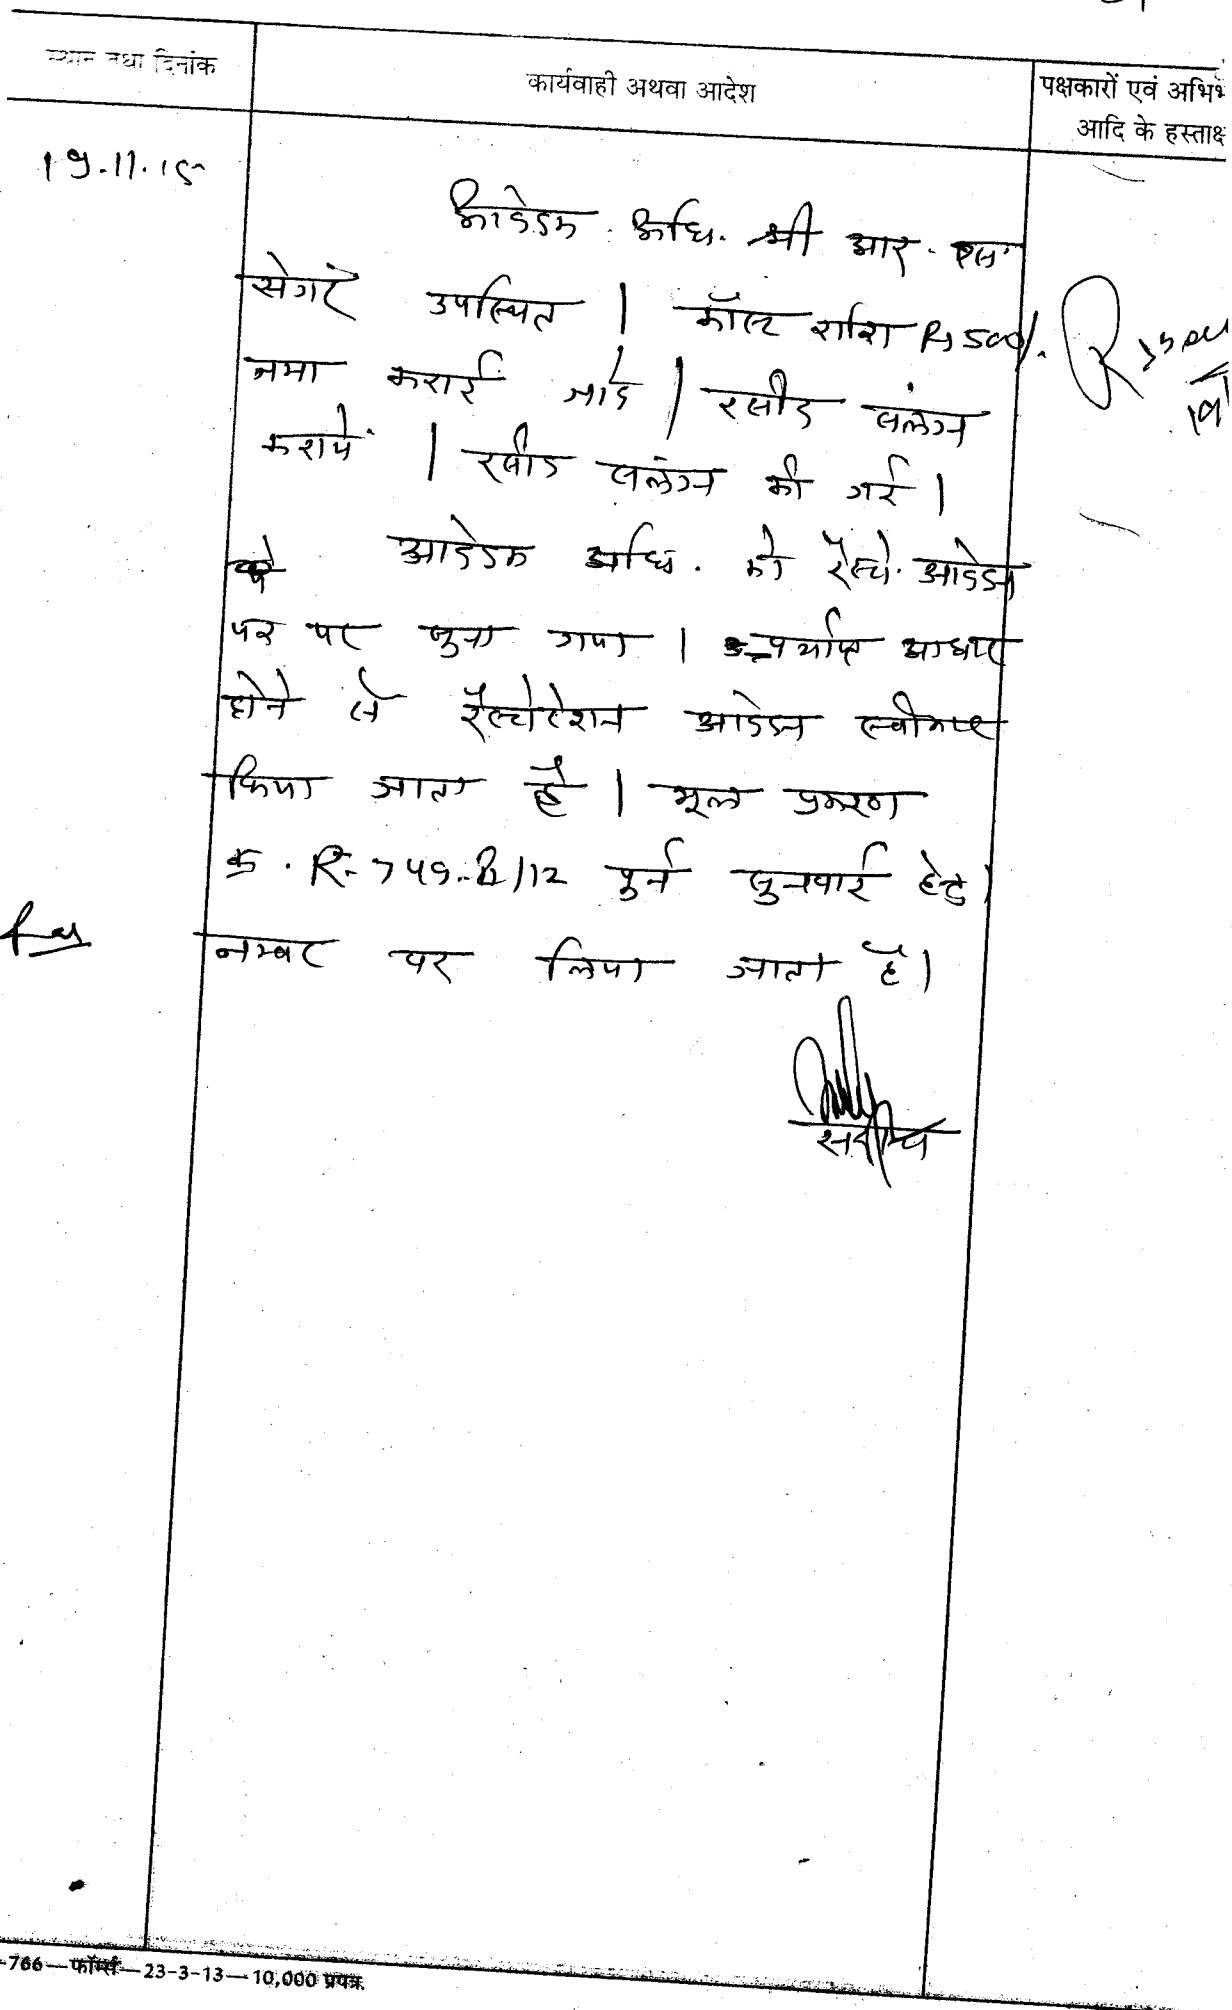 स्थान तथा दिनांक
कार्यवाही अथवा आदेश
पक्षकारों एवं अभिभ
आदि के हस्ताक्ष
19.11.15
आवेदक अधि. श्री आर. एस
सेंगर उपस्थित | कॉस्ट राशि Rs 500/-
जमा कराई जावे | रसीद संलग्न
कराये | रसीद संलग्न की गई |
आवेदक अधि. को रेस्टो. आवेदन
पत्र पर सुना गया | पर्याप्त आधार
होने से रेस्टोरेशन आवेदन स्वीकार
किया जाता है | मूल प्रकरण
क्र. R-749-B/12 पुर्न सुनवाई हेतु
नम्बर पर लिया जाता है |
सदस्य
-766—फॉर्म्स—23-3-13—10,000 प्रपत्र.